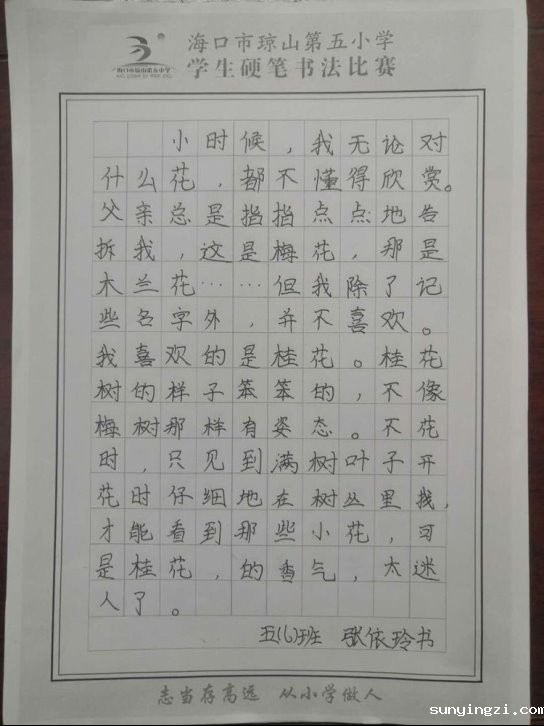 海口市琼山第五小学
学生硬笔书法比赛
小时候，我无论对
什么花，都不懂得欣赏。
父亲总是指指点点地告
拆我，这是梅花，那是
木兰花……但我除了记
些名字外，并不喜欢。
我喜欢的是桂花。桂花
树的样子笨笨的，不像
梅树那样有姿态。不花
时，只见到满树叶子开
花时仔细地在树丛里找，
才能看到那些小花，可
是桂花，的香气，太迷
人了。
五(6)班 张依玲书
志当存高远 从小学做人
sunyingzi.com